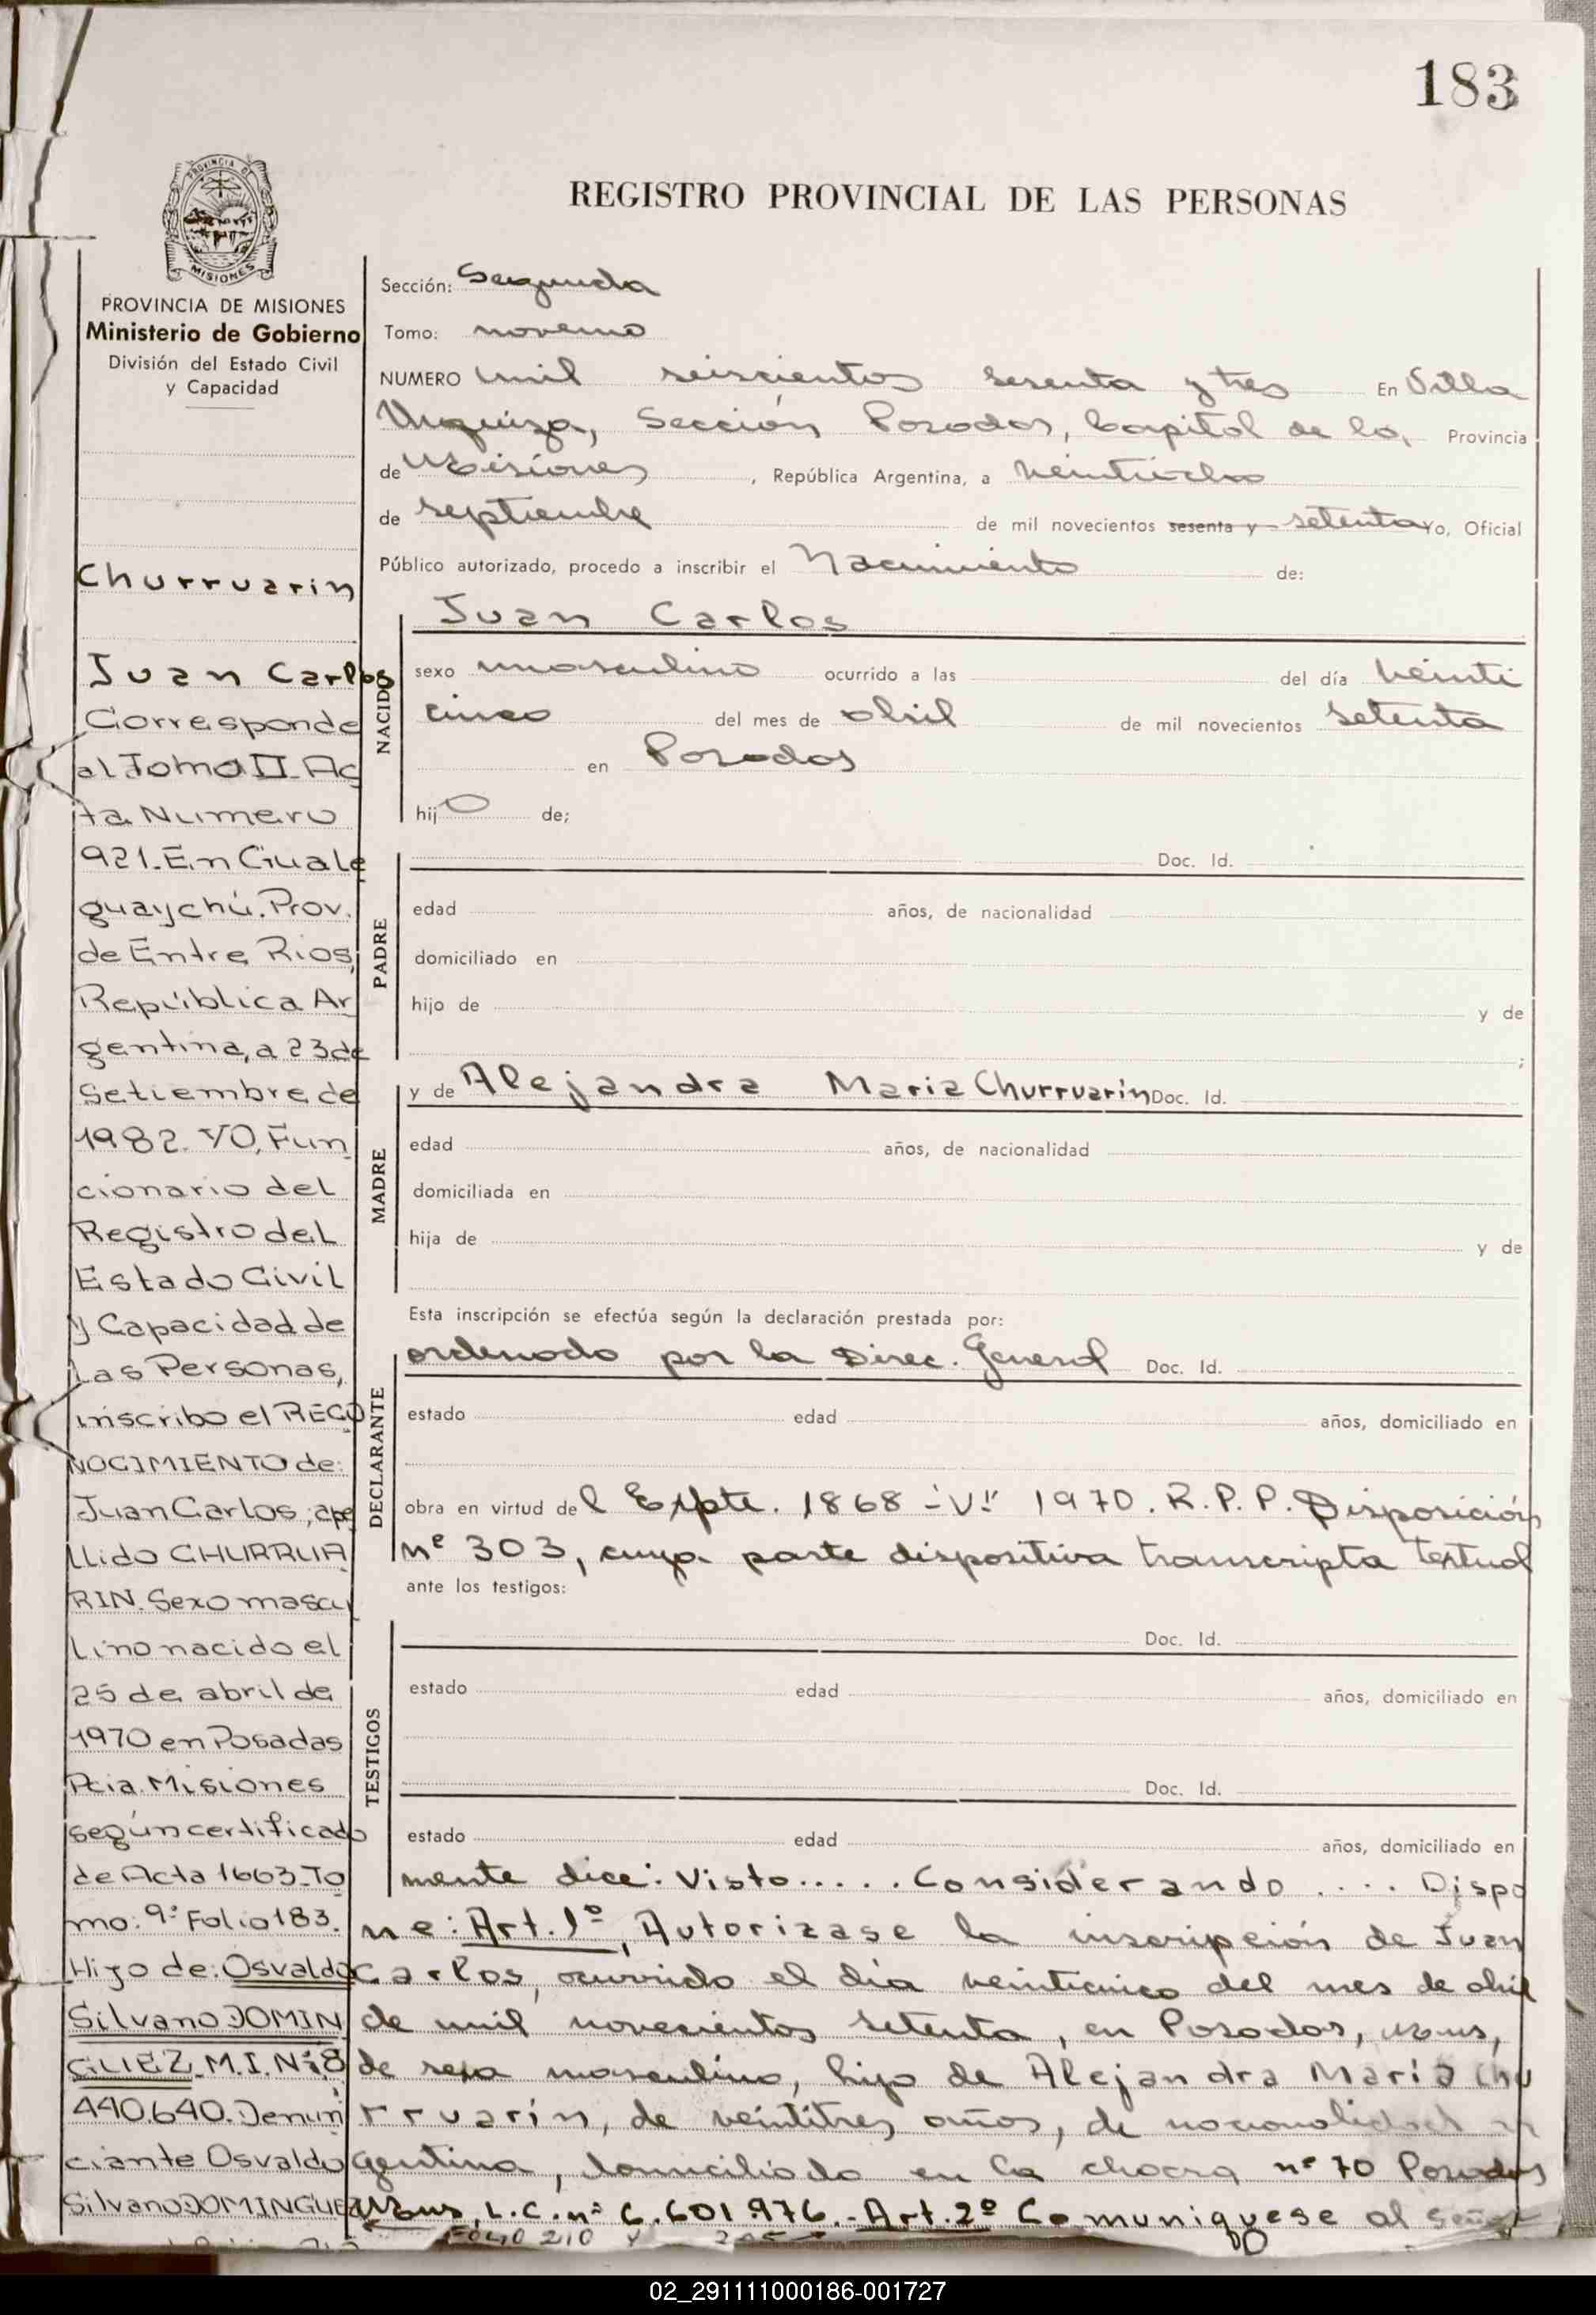 183
REGISTRO PROVINCIAL DE LAS PERSONAS
PROVINCIA DE MISIONES
Ministerio de Gobierno
División del Estado Civil
y Capacidad
Churruarin
Juan Carlos
Corresponde
al Tomo II Ac
ta Numero
921. En Guale
guaychú. Prov.
de Entre Rios,
República Ar
gentina, a 23 de
Setiembre de
1982. YO, Fun
cionario del
Registro del
Estado Civil
y Capacidad de
las Personas,
inscribo el RECO
NOCIMIENTO de:
Juan Carlos; ape
llido CHURRUA
RIN. Sexo mascu
lino nacido el
25 de abril de
1970 en Posadas
Pcia. Misiones
según certificado
de Acta 1663 To
mo: 9º Folio 183.
Hijo de: Osvaldo
Silvano DOMIN
GUEZ M.I. Nº 8
440.640. Denun
ciante Osvaldo
Silvano DOMINGUEZ
Sección: Segunda
Tomo: noveno
NUMERO mil seiscientos sesenta y tres En Villa
Urquiza, Sección Posadas, Capital de la, Provincia
de Misiones, República Argentina, a veintiocho
de septiembre de mil novecientos sesenta y setenta Yo, Oficial
Público autorizado, procedo a inscribir el Nacimiento de:
NACIDO
Juan Carlos
sexo masculino ocurrido a las del día veinti
cinco del mes de abril de mil novecientos setenta
en Posadas
hijo de;
PADRE
Doc. Id.
edad años, de nacionalidad
domiciliado en
hijo de y de
;
MADRE
y de Alejandra Maria Churruarín Doc. Id.
edad años, de nacionalidad
domiciliada en
hija de y de
Esta inscripción se efectúa según la declaración prestada por:
DECLARANTE
ordenado por la Direc. General Doc. Id.
estado edad años, domiciliado en
obra en virtud del Expte. 1868-"V" 1970. R.P.P. Disposición
nº 303, cuya parte dispositiva transcripta textual
ante los testigos:
TESTIGOS
Doc. Id.
estado edad años, domiciliado en
Doc. Id.
estado edad años, domiciliado en
mente dice: Visto..... Considerando .... Dispo
ne: Art. 1º, Autorizase la inscripción de Juan
Carlos, ocurrido el día veinticinco del mes de abril
de mil novecientos setenta, en Posadas, Mnes,
de sexo masculino, hijo de Alejandra María Chu
rruarín, de veintitres años, de nacionalidad ar
gentina, domiciliada en la chacra nº 70 Posadas
Mnes, L.C. nº 6.601.976.- Art. 2º Comuniquese al Señor
Folio 210 y
02_291111000186-001727